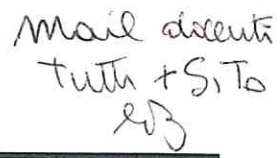 Mail docenti
tutti + Sito